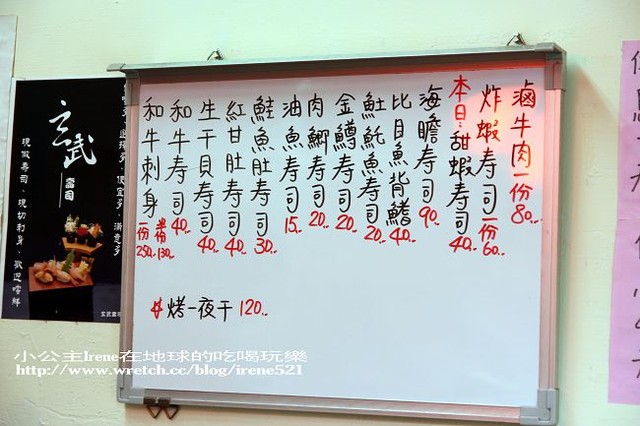 滷牛肉一份80..
炸蝦壽司一份60..
本日:甜蝦壽司40..
海膽壽司90..
比目魚背鰭40..
魟魠魚壽司20..
金鱒壽司20..
肉鯽壽司20..
油魚壽司15..
鮭魚肚壽司30..
紅甘肚壽司40..
生干貝壽司40..
和牛壽司40..
和牛刺身半份130..一份250..
烤一夜干120..
玄武壽司
現做壽司、現切刺身、歡迎嚐鮮
便宜多、滿意多
小公主Irene在地球的吃喝玩樂
http://www.wretch.cc/blog/irene521